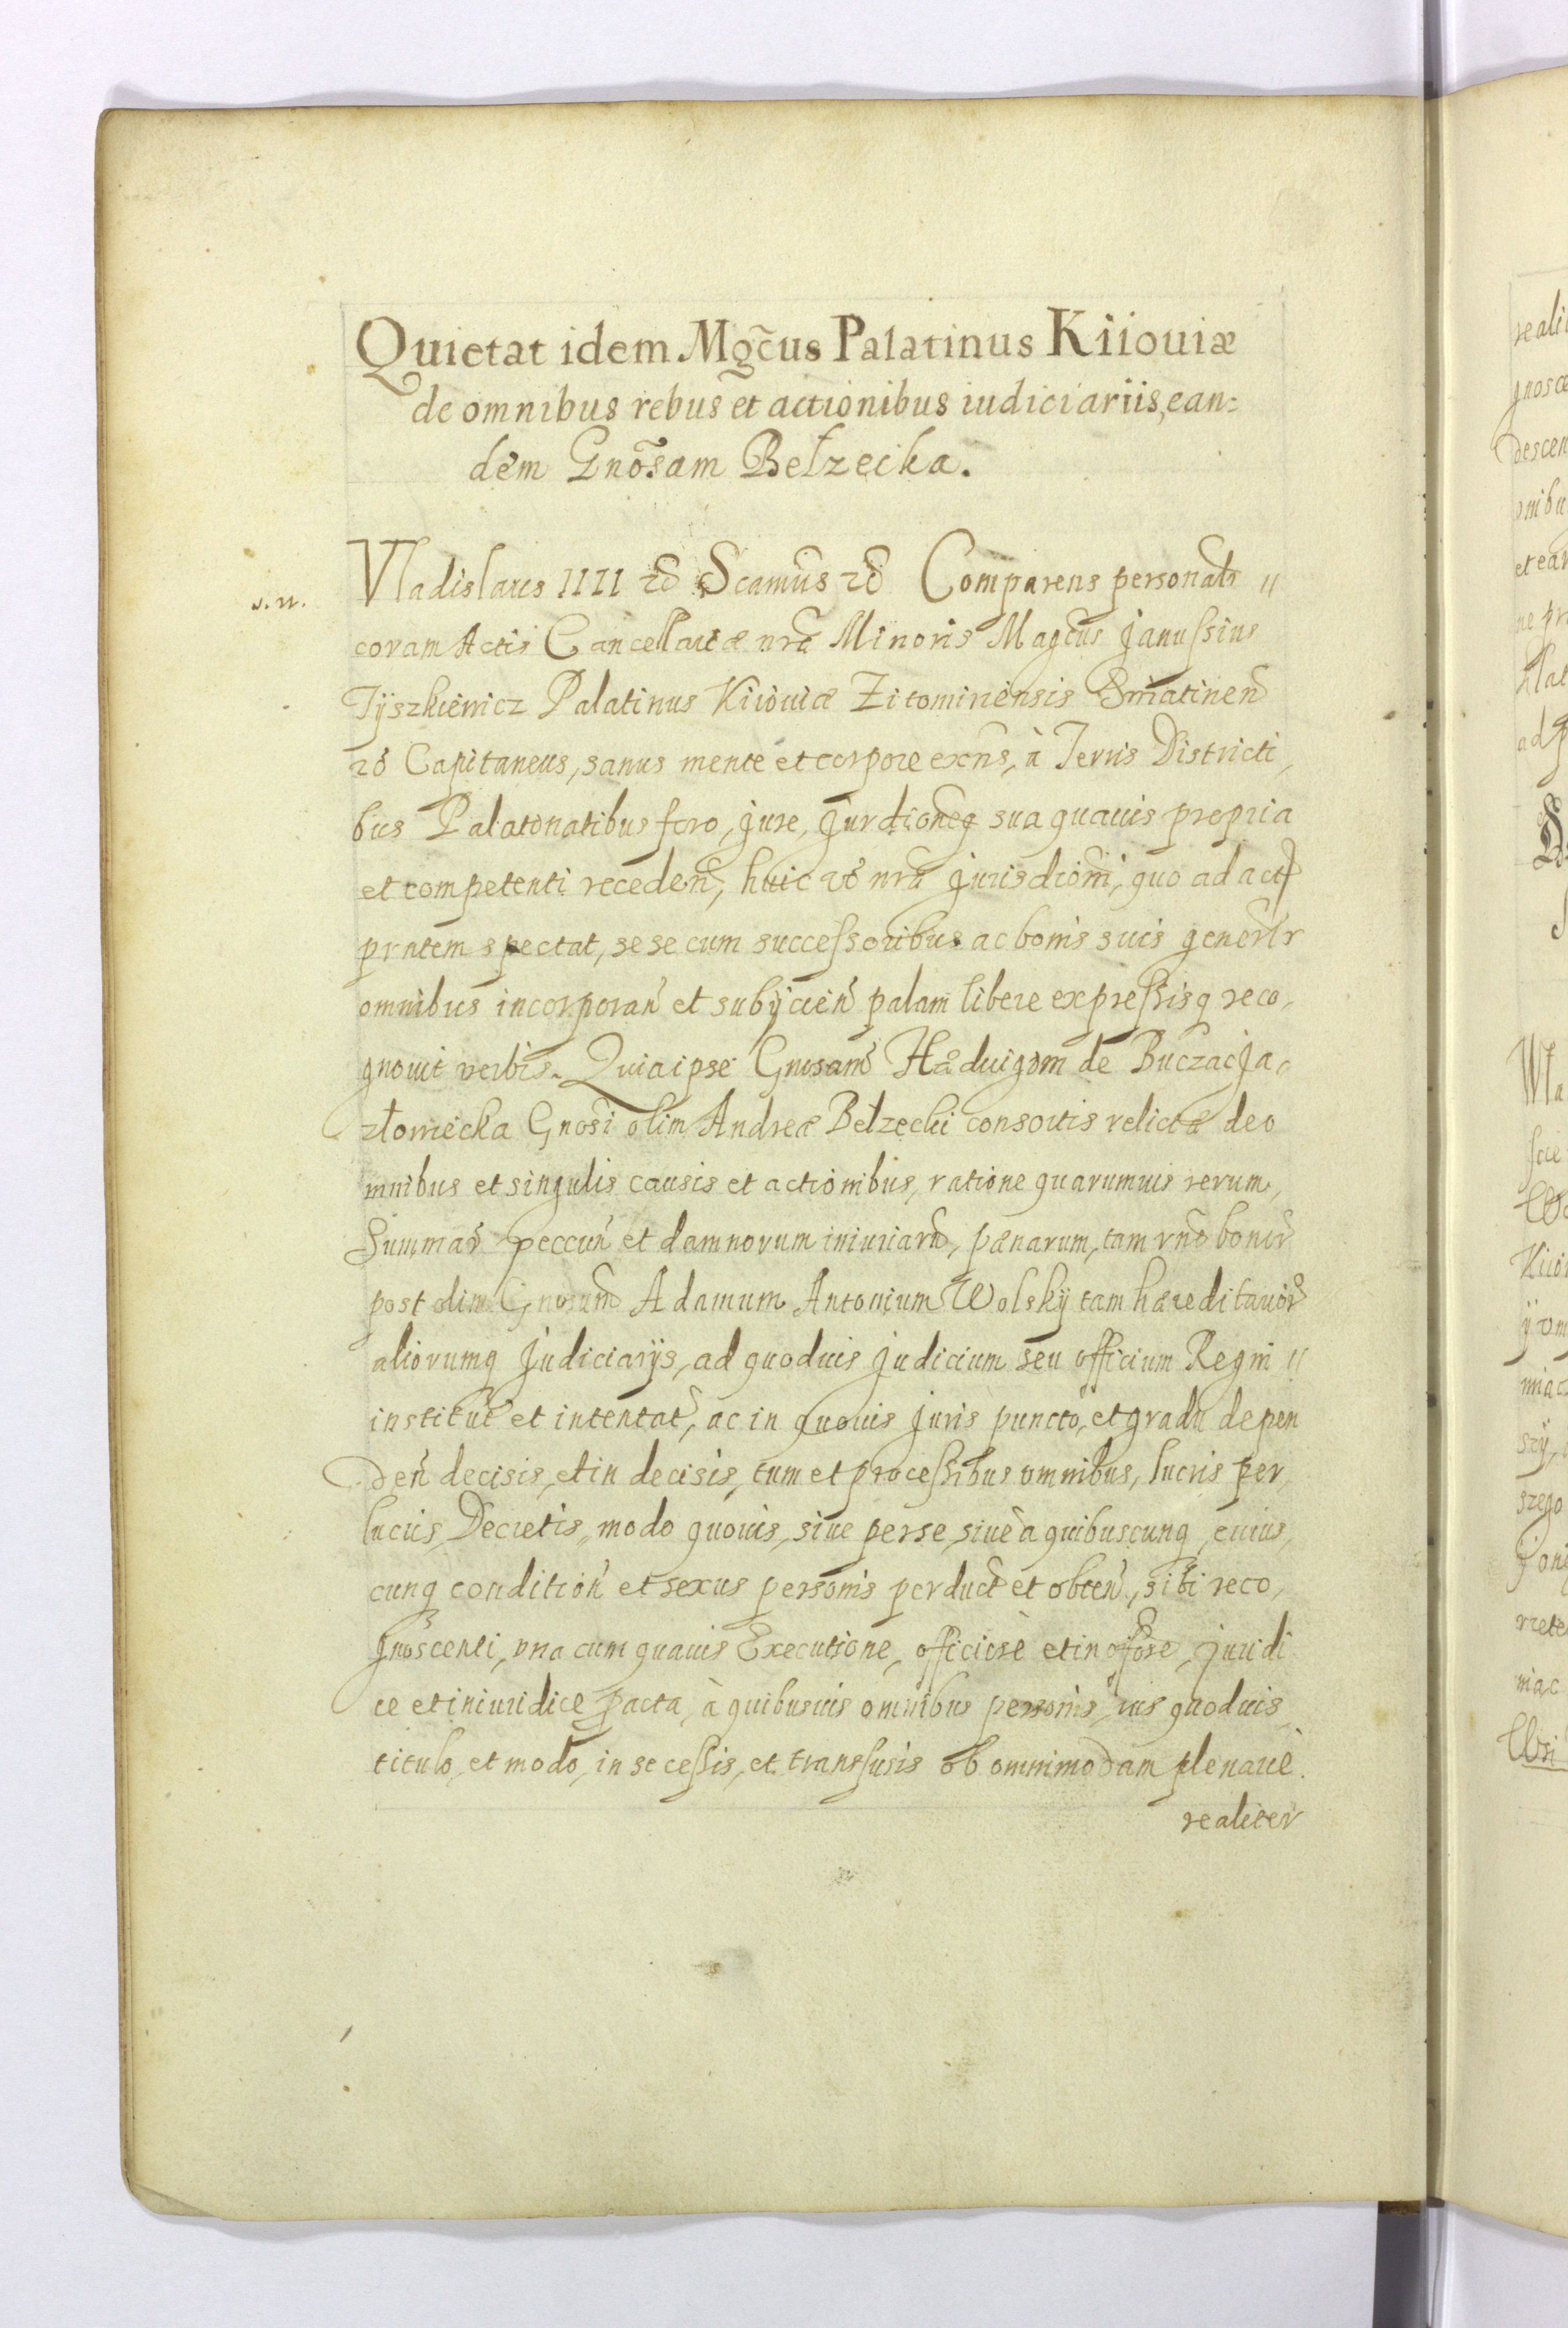 Quietat idem Mgc̃us Palatinus Kiiouiæ
de omnibus rebus et actionibus iudiciariis, ean:
dem Gnõsam Bełzecka.
Vladislaus IIII Scamus Comparens personalr
s. n.
coram Actis Cancellariæ nrã Minoris Magcus Janussius
Tÿszkiewicz Palatinus Kiiouiæ Zitomiriensis Sniatinen
Capitaneus, sanus mente et corpore exns, à Terris Districti,
bus Palatonatibus foro, jure, jurdioneq sua quauis propria
et competenti receden, huic vo nrã jurisdioni, quo ad act
prntem spectat, se se cum successoribus ac bonis suis generlr
omnibus incorporan et subÿcien palam libere expressisq reco,
gnouit verbis. Quia ipse Gnosam Haduigam de Buczac Ja,
złowiecka Gnosi olim Andreæ Bełzecki consortis relictæ de o
mnibus et singulis causis et actionibus, ratione quarumuis rerum,
Summar peccun et damnorum iniuriaru, pænarum, tam rne bonor
post olim Gnosum Adamum Antonium Wolskÿ tam hæreditarior
aliorumq Judiciarÿs, ad quoduis judicium seu officium Regni
institut et intentat, ac in quouis juris puncto, et gradu depen
den decisis, et in decisis, tum et processibus omnibus, lucris per,
lucris, Decretis, modo quouis, siue per se, siue à quibuscunq, cuius,
cunq condition et sexus personis perduct et obten, sibi reco,
gnoscenti, vna cum quauis Executione, officiose et inoffose, juridi
ce et iniuridice pacta, à quibusuis omnibus personis, ius quoduis
titulo, et modo, in se cessis, et transfusis ob omnimodam plenarie.
realiter